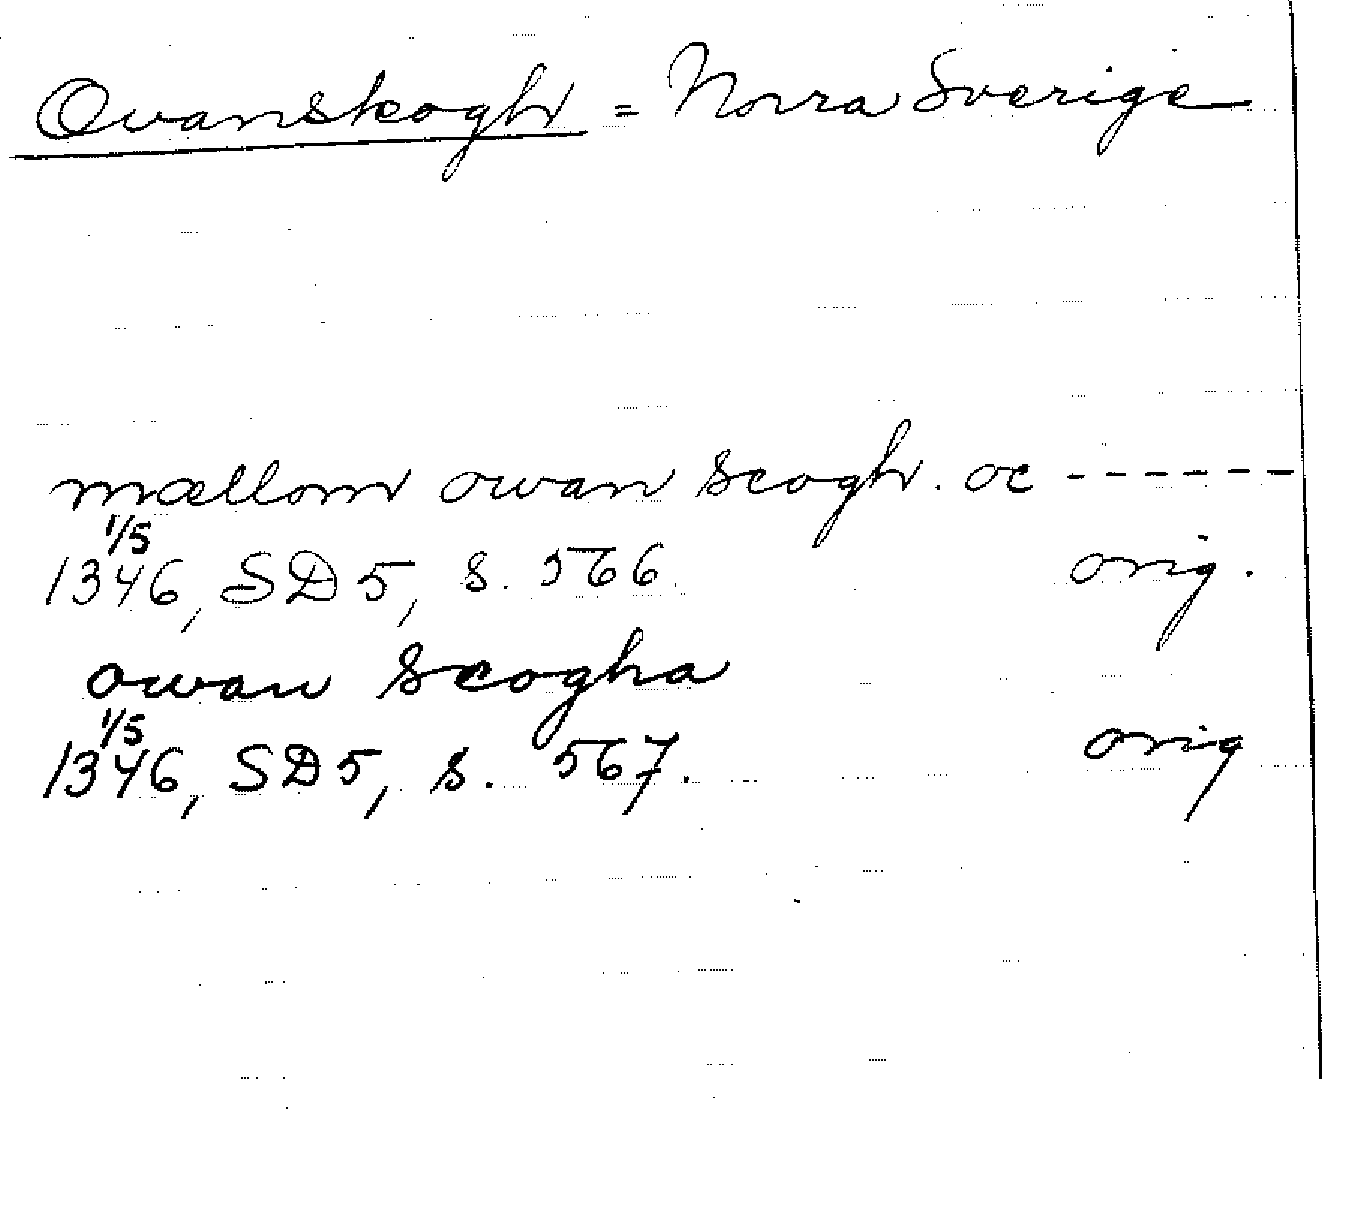 Ovanskogh = Norra Sverige
mællom owan scogh. oc ------
1/5
1346, SD 5, s. 566. orig.
owan scogha
1/5
1346, SD 5, s. 567. orig